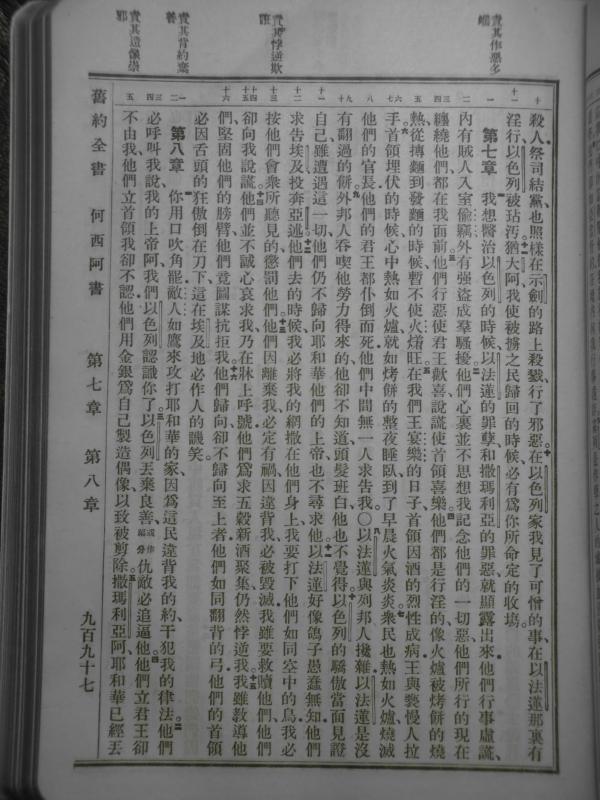 責其作惡多端
責其悖逆欺誑
責其背約棄善
責其造像崇邪
十
殺人祭司結黨也照樣在示劍的路上殺戮行了邪惡在以色列家我見了可憎的事在以法蓮那裏有
十一
淫行以色列被玷汚猶大阿我使被擄之民歸回的時候必有爲你所命定的收場
一
第七章 我想醫治以色列的時候以法蓮的罪孽和撒瑪利亞的罪惡就顯露出來他們行事虛謊
二
內有賊人入室偷竊外有强盜成羣騷擾他們心裏並不思想我記念他們的一切惡他們所行的現在
三 四
纏繞他們都在我面前他們行惡使君王歡喜說謊使首領喜樂他們都是行淫的像火爐被烤餅的燒
五
熱從摶麵到發麵的時候暫不使火着旺在我們王宴樂的日子首領因酒的烈性成病王與褻慢人拉
六 七
手首領埋伏的時候心中熱如火爐就如烤餅的整夜睡臥到了早晨火氣炎炎衆民也熱如火爐燒滅
八
他們的官長他們的君王都仆倒而死他們中間無一人求告我〇以法蓮與列邦人攙雜以法蓮是沒
九 十
有翻過的餅外邦人吞喫他勞力得來的他卻不知道頭髮斑白他也不覺得以色列的驕傲當面見證
十一
自己雖遭遇這一切他們仍不歸向耶和華他們的上帝也不尋求他以法蓮好像鴿子愚蠢無知他們
十二
求告埃及投奔亞述他們去的時候我必將我的網撒在他們身上我要打下他們如同空中的鳥我必
十三
按他們會衆所聽見的懲罰他們他們因離棄我必定有禍因違背我必被毀滅我雖要救贖他們他們
十四 十五
卻向我說謊他們並不誠心哀求我乃在牀上呼號他們爲求五穀新酒聚集仍然悖逆我我雖敎導他
十六
們堅固他們的膀臂他們竟圖謀抗拒我他們歸向卻不歸向至上者他們如同翻背的弓他們的首領
必因舌頭的狂傲倒在刀下這在埃及地必作人的譏笑
一 二
第八章 你用口吹角罷敵人如鷹來攻打耶和華的家因爲這民違背我的約干犯我的律法他們
三 四
必呼叫我說我的上帝阿我們以色列認識你了以色列丟棄良善或作福分仇敵必追逼他他們立君王卻
五
不由我他們立首領我卻不認他們用金銀爲自己製造偶像以致被剪除撒瑪利亞阿耶和華已經丟
舊約全書 何西阿書 第七章 第八章 九百九十七